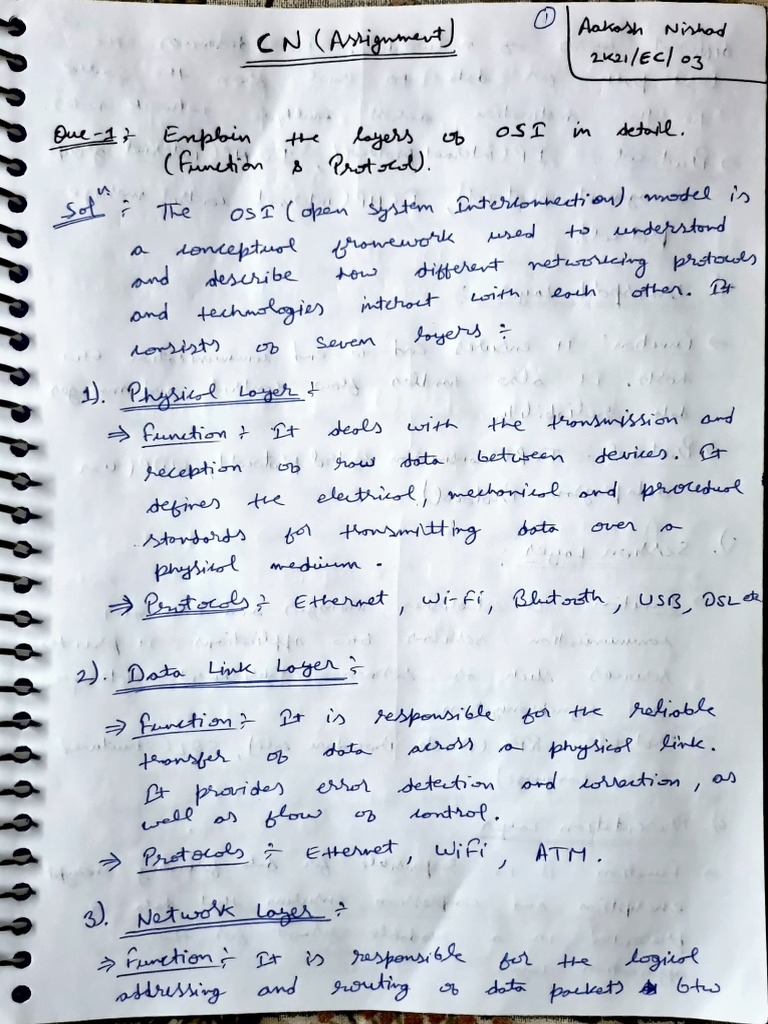 CN (Assignment)
①
Aakash Nishad
2K21/EC/03
Que-1 :- Explain the layers of OSI in detail.
(Function & Protocol).
Solⁿ :- The OSI (open system Interconnection) model is
a conceptual framework used to understand
and describe how different networking protocols
and technologies interact with each other. It
consists of seven layers :-
1). Physical Layer :-
⇒ Function :- It deals with the transmission and
reception of raw data between devices. It
defines the electrical, mechanical and procedural
standards for transmitting data over a
physical medium.
⇒ Protocols :- Ethernet, Wi-Fi, Blutooth, USB, DSL etc
2). Data Link Layer :-
⇒ Function :- It is responsible for the reliable
transfer of data across a physical link.
It provides error detection and correction, as
well as flow of control.
⇒ Protocols :- Ethernet, WiFi, ATM.
3). Network Layer :-
⇒ Function :- It is responsible for the logical
addressing and routing of data packets btw